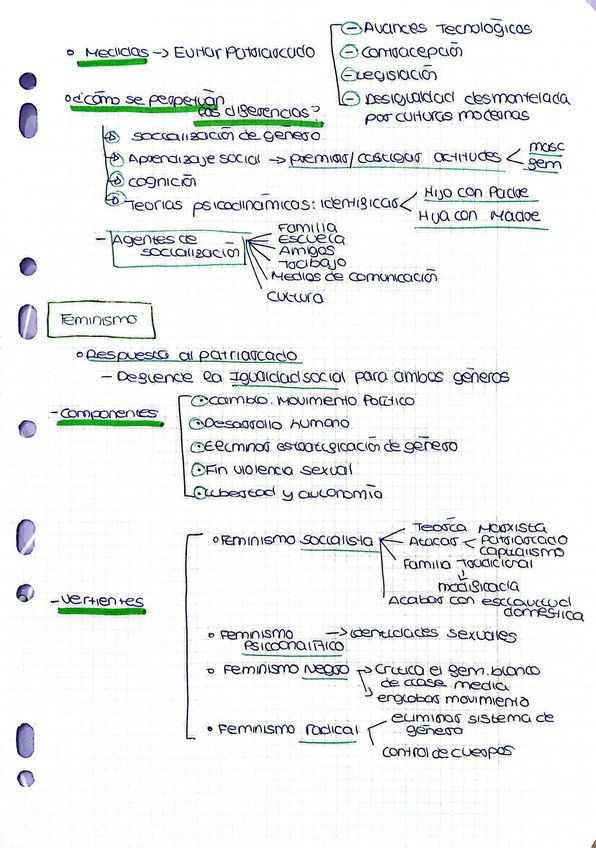 • Medidas → Evitar Patriarcado
- Avances Tecnológicos
- Contracepción
- Legislación
- Desigualdad desmantelada
por culturas modernas
• ¿Cómo se perpetúan
las diferencias?
→ Socialización de género
→ Aprendizaje social → premiar/castigar actitudes < masc
fem
→ Cognición
→ Teorías psicodinámicas: identificar < Hijo con Padre
Hija con Madre
- Agentes de
socialización
Familia
Escuela
Amigos
Trabajo
Medios de comunicación
Cultura
Feminismo
• Respuesta al patriarcado
- Defiende la Igualdad social para ambos géneros
- Componentes
• Cambio. Movimiento Político
• Desarrollo humano
• Eliminar estratificación de género
• Fin violencia sexual
• Libertad y autonomía
- Vertientes
• Feminismo socialista
Teoría Marxista
Atacar < Patriarcado
Capitalismo
Familia Tradicional
↓
modificarla
Acabar con esclavitud
doméstica
• Feminismo → identidades sexuales
Psicoanalítico
• Feminismo Negro → Critica el fem. blanco
de clase media
englobar movimiento
• Feminismo radical
eliminar sistema de
género
control de cuerpos